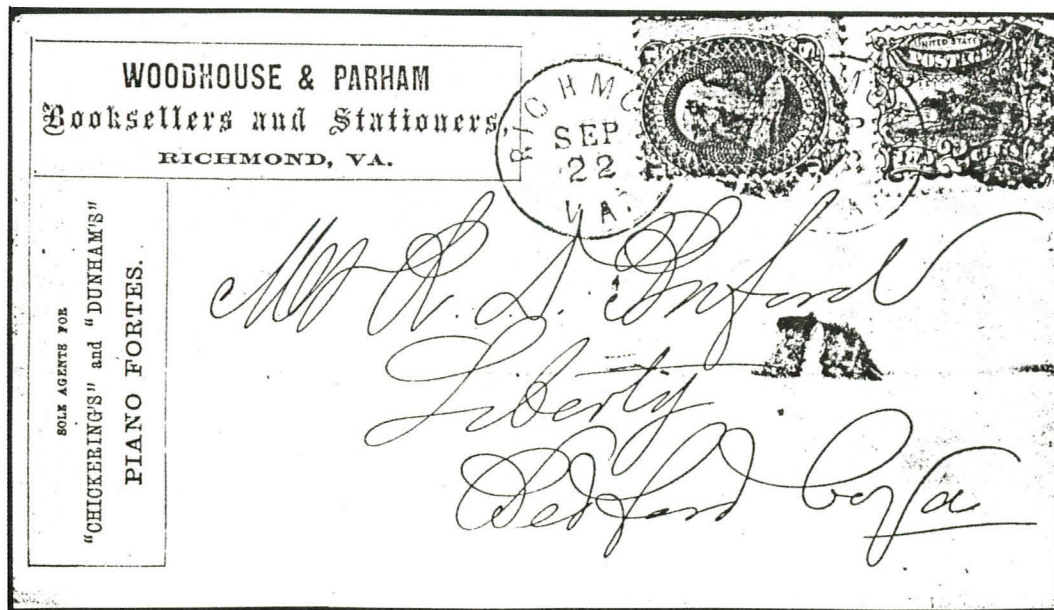 WOODHOUSE & PARHAM
Booksellers and Stationers,
RICHMOND, VA.
SOLE AGENTS FOR
"CHICKERING'S" and "DUNHAM'S"
PIANO FORTES.
RICHMO
SEP
22
VA.
UNITED STATES
POSTAGE
Mr R. S. Buford
Liberty
Bedford Co Va